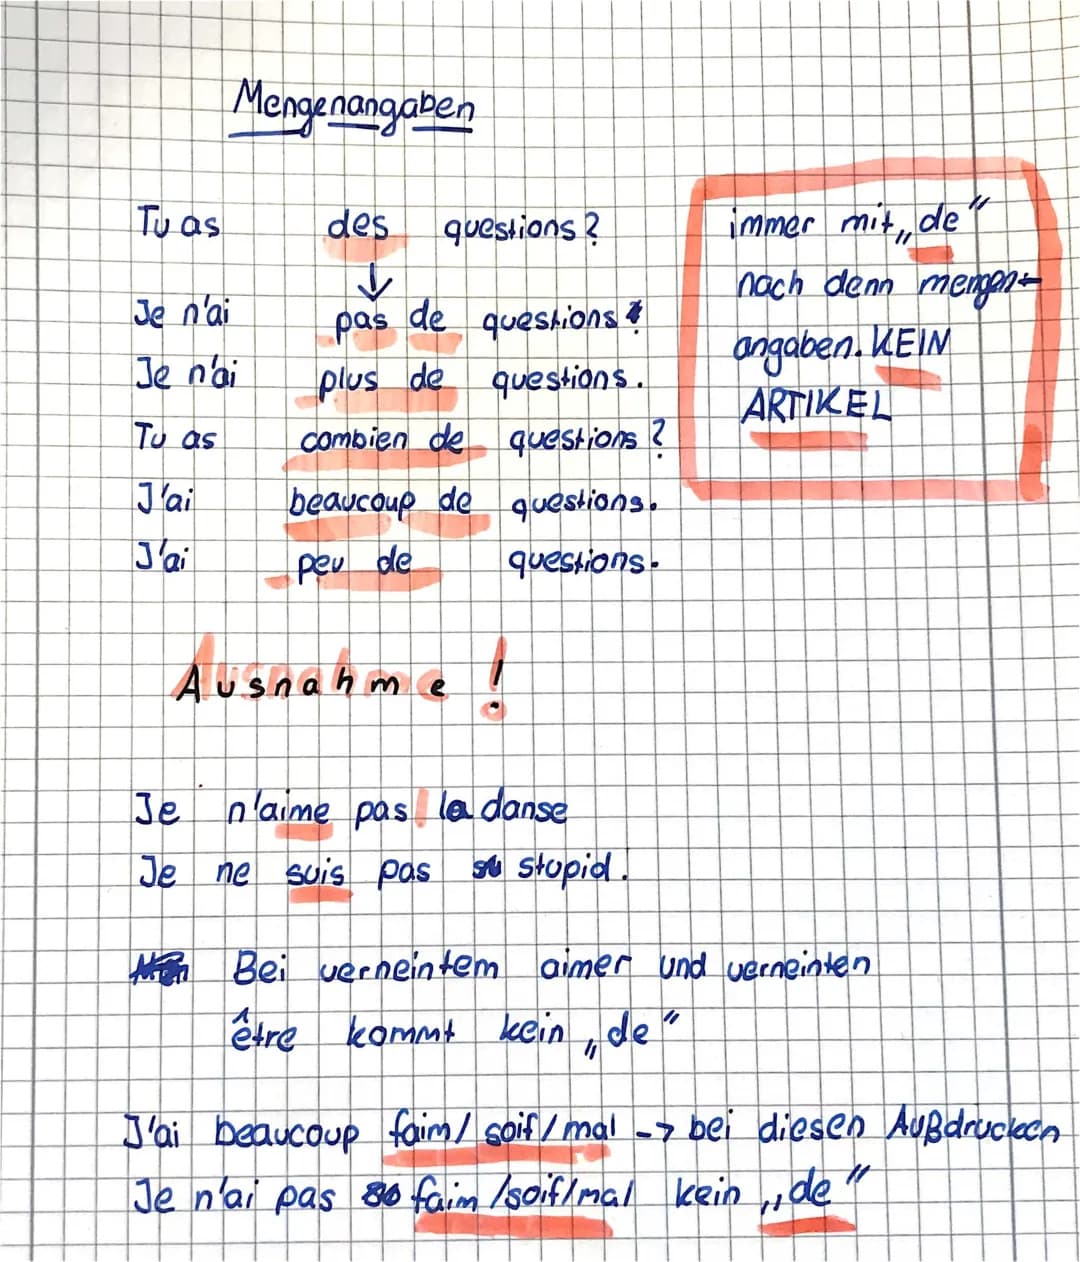 Mengenangaben
Tu as des questions?
Je n'ai pas de questions.
Je n'ai plus de questions.
Tu as combien de questions?
J'ai beaucoup de questions.
J'ai peu de questions.
immer mit „de"
nach denn mengen-
angaben. KEIN
ARTIKEL
Ausnahme!
Je n'aime pas! la danse
Je ne suis pas stupid.
Bei verneintem aimer und verneinten
être kommt kein „de"
J'ai beaucoup faim/ soif/mal -> bei diesen Außdrücken
Je n'ai pas faim/soif/mal kein „de"